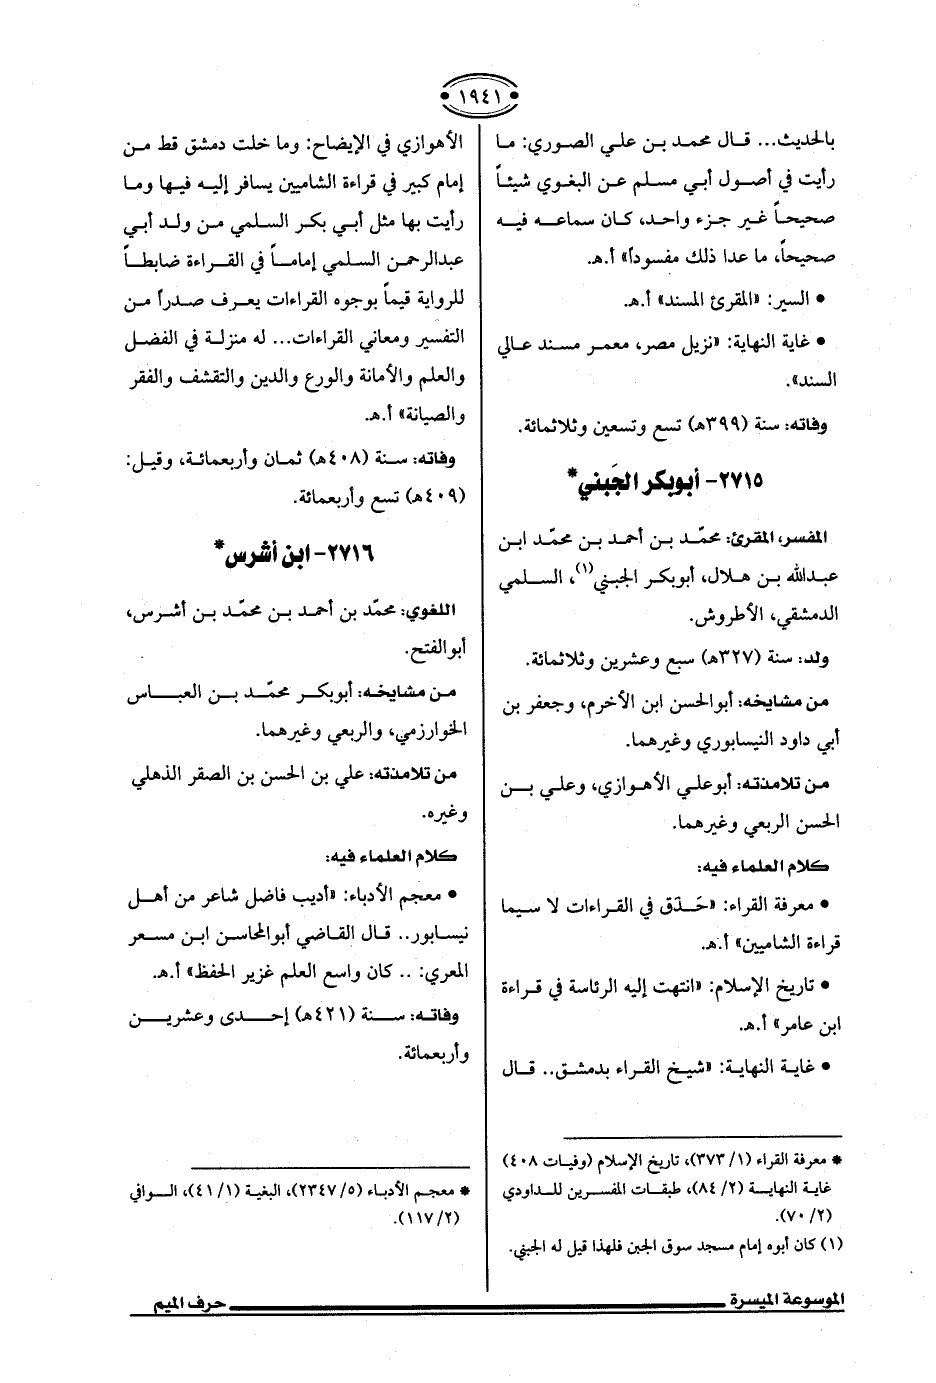 ١٩٤١
بالحديث... قال محمد بن علي الصوري: ما
رأيت في أصول أبي مسلم عن البغوي شيئاً
صحيحاً غير جزء واحد، كان سماعه فيه
صحيحاً، ما عدا ذلك مفسوداً» أ.هـ.
• السير: «المقرئ المسند» أ.هـ.
• غاية النهاية: «نزيل مصر، معمر مسند عالي
السند».
وفاته: سنة (٣٩٩هـ) تسع وتسعين وثلاثمائة.
٢٧١٥- أبوبكر الجَبني*
المفسر، المقرئ: محمّد بن أحمد بن محمّد ابن
عبدالله بن هلال، أبوبكر الجبني(١)، السلمي
الدمشقي، الأطروش.
ولد: سنة (٣٢٧هـ) سبع وعشرين وثلاثمائة.
من مشايخه: أبوالحسن ابن الأخرم، وجعفر بن
أبي داود النيسابوري وغيرهما.
من تلامذته: أبوعلي الأهوازي، وعلي بن
الحسن الربعي وغيرهما.
كلام العلماء فيه:
• معرفة القراء: «حَذَق في القراءات لا سيما
قراءة الشاميين» أ.هـ.
• تاريخ الإسلام: «انتهت إليه الرئاسة في قراءة
ابن عامر» أ.هـ.
• غاية النهاية: «شيخ القراء بدمشق.. قال
* معرفة القراء (١/ ٣٧٣)، تاريخ الإسلام (وفيات ٤٠٨)
غاية النهاية (٢/ ٨٤)، طبقات المفسرين للداودي
(٢/ ٧٠).
(١) كان أبوه إمام مسجد سوق الجبن فلهذا قيل له الجبني.
الأهوازي في الإيضاح: وما خلت دمشق قط من
إمام كبير في قراءة الشاميين يسافر إليه فيها وما
رأيت بها مثل أبي بكر السلمي من ولد أبي
عبدالرحمن السلمي إماماً في القراءة ضابطاً
للرواية قيماً بوجوه القراءات يعرف صدراً من
التفسير ومعاني القراءات... له منزلة في الفضل
والعلم والأمانة والورع والدين والتقشف والفقر
والصيانة» أ.هـ.
وفاته: سنة (٤٠٨هـ) ثمان وأربعمائة، وقيل:
(٤٠٩هـ) تسع وأربعمائة.
٢٧١٦- ابن أشرس*
اللغوي: محمّد بن أحمد بن محمّد بن أشرس،
أبوالفتح.
من مشايخه: أبوبكر محمّد بن العباس
الخوارزمي، والربعي وغيرهما.
من تلامذته: علي بن الحسن بن الصقر الذهلي
وغيره.
كلام العلماء فيه:
• معجم الأدباء: «أديب فاضل شاعر من أهل
نيسابور.. قال القاضي أبوالمحاسن ابن مسعر
المعري: .. كان واسع العلم غزير الحفظ» أ.هـ.
وفاته: سنة (٤٢١هـ) إحدى وعشرين
وأربعمائة.
* معجم الأدباء (٥/ ٢٣٤٧)، البغية (١/ ٤١)، الوافي
(٢/ ١١٧).
الموسوعة الميسرة
حرف الميم